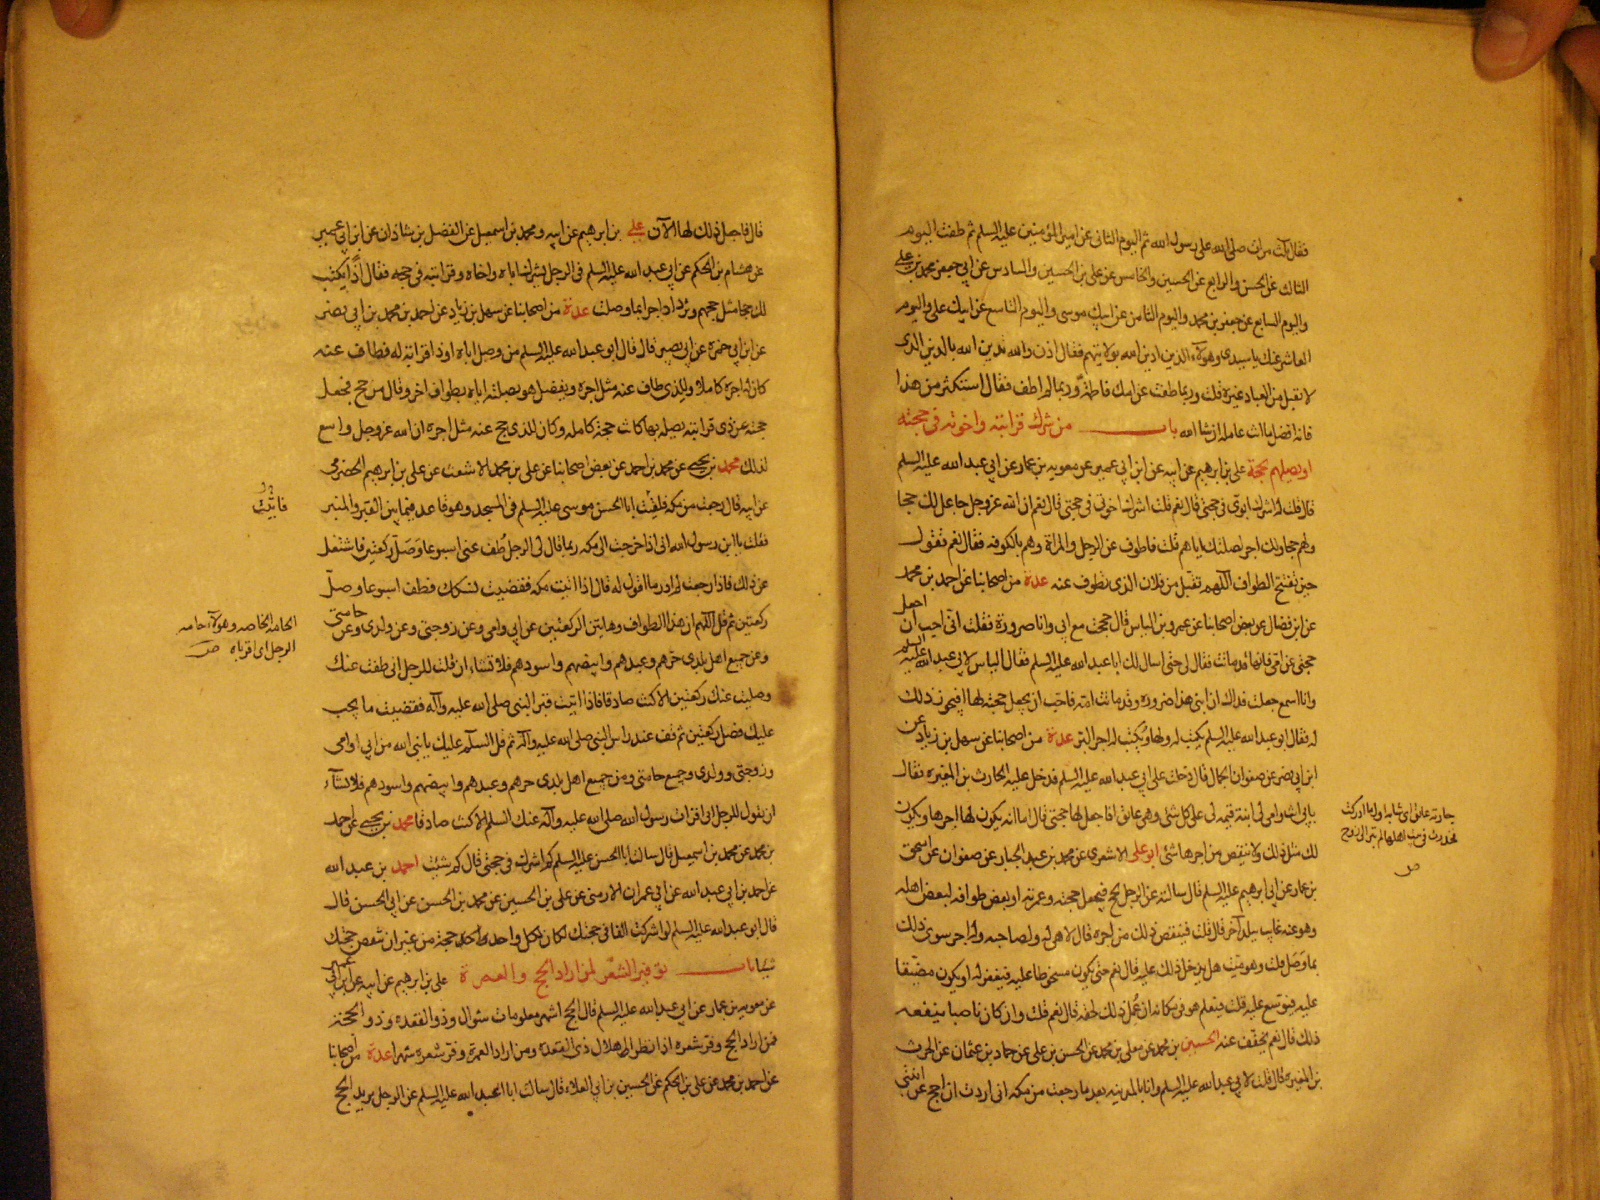 فقال ثلث مرات صلى الله على رسول الله ثم اليوم الثانى عن امير المؤمنين عليه السلم ثم طفت اليوم
الثالث عن الحسن والرابع عن الحسين والخامس عن على بن الحسين والسادس عن ابى جعفر محمد بن على
واليوم السابع عن جعفر بن محمد واليوم الثامن عن ابيك موسى واليوم التاسع عن ابيك على واليوم
العاشر عنك يا سيدى وهؤلاء الذين ادين الله بولايتهم فقال اذن والله تدين الله بالدين الذى
لا تقبل من العباد غيره قلت وربما طفت عن امك فاطمة وربما لم اطف فقال استكثر من هذا
فانه افضل ما انت عامله ان شا الله باب من شرك قرابته واخوته فى حجته
او يصلهم بحجة على بن ابرهيم عن ابيه عن ابن ابى عمير عن معويه بن عمار عن ابى عبد الله عليه السلم
قال قلت له اشرك ابوى فى حجتى قال نعم قلت اشرك اخوتى فى حجتى قال نعم ان الله عز وجل جاعل لك حجا
ولهم حجا ولك اجر لصلتك اياهم قلت فاطوف عن الرجل والمراة وهم بالكوفه فقال نعم تقول
حين تفتتح الطواف اللهم تقبل من فلان الذى تطوف عنه عدة من اصحابنا عن احمد بن محمد
عن ابن فضال عن بعض اصحابنا عن عمرو بن الياس قال حججت مع ابى وانا صرورة فقلت انى احب ان اجعل
حجتى عن امى فانها قد ماتت فقال لى حتى اسال لك ابا عبد الله عليه السلم فقال الياس لابى عبد الله عليه السلم
وانا اسمع جعلت فداك ان ابنى هذا صرورة وقد ماتت امه فاحب ان يجعل حجته لها افيجوز ذلك
له فقال ابو عبد الله عليه السلم يكتب له ولها ويكتب له اجر البر عدة من اصحابنا عن سهل بن زياد عن
ابن ابى نصر عن صفوان الجمال قال دخلت على ابى عبد الله عليه السلم فدخل عليه الحارث بن المغيره فقال
بابى انت وامى لى ابنة قيمه لى على كل شئ وهى عاتق افاجعل لها حجتى قال اما انه يكون لها اجرها ويكون
لك مثل ذلك ولا ينقص من اجرها شئ ابو على الاشعرى عن محمد بن عبد الجبار عن صفوان عن اسحق
بن عمار عن ابى ابرهيم عليه السلم قال سالته عن الرجل يحج فيجعل حجته وعمرته او بعض طوافه لبعض اهله
وهو عنه غايب ببلد آخر قال قلت فينقص ذلك من اجره قال لا هى له ولصاحبه وله اجر سوى ذلك
بما وصل قلت وهو ميت هل يدخل ذلك عليه قال نعم حتى يكون مسخوطا عليه فيغفر له او يكون مضيقا
عليه فيوسع عليه قلت فيعلم هو فى مكانه ان عمل ذلك لحقه قال نعم قلت وان كان ناصبا ينفعه
ذلك قال نعم يخفف عنه الحسين بن محمد عن معلى بن محمد عن الحسن بن على عن حماد بن عثمان عن الحرث
بن المغيره قال قلت لابى عبد الله عليه السلم وانا بالمدينه بعد ما رجعت من مكه انى اردت ان احج عن ابنتى
جارية عاتق اى شابه اول ما ادركت
فخدرت فى بيت اهلها لم تبن الى زوج
ص
قال فاجعل ذلك لها الآن على بن ابرهيم عن ابيه ومحمد بن اسمعيل عن الفضل بن شاذان عن ابن ابى عمير
عن هشام بن الحكم عن ابى عبد الله عليه السلم فى الرجل يشرك اباه واخاه وقرابته فى حجه فقال اذًا يكتب
لك حجا مثل حجهم وتزداد اجرا بما وصلت عدة من اصحابنا عن سهل بن زياد عن احمد بن محمد بن ابى نصر
عن ابن ابى حمزه عن ابى بصير قال قال ابو عبد الله عليه السلم من وصل اباه او ذا قرابة له فطاف عنه
كان له اجره كاملا وللذى طاف عنه مثل اجره ويفضل هو بصلته اياه بطواف اخر وقال من حج فجعل
حجته عن ذى قرابته يصله بها كانت حجته كامله وكان للذى حج عنه مثل اجره ان الله عز وجل واسع
لذلك محمد بن يحيى عن محمد بن احمد عن بعض اصحابنا عن على بن محمد الاشعث عن على بن ابرهيم الحضرمى
عن ابيه قال رجعت من مكه فلقيت ابا الحسن موسى عليه السلم فى المسجد وهو قاعد فيما بين القبر والمنبر
فقلت يا ابن رسول الله انى اذا خرجت الى مكه ربما قال لى الرجل طف عنى اسبوعا وصل ركعتين فاشتغل
عن ذلك فاذا رجعت لم ادر ما اقول له قال اذا اتيت مكه فقضيت نسكك فطف اسبوعا وصل
ركعتين ثم قل اللهم ان هذا الطواف وهاتين الركعتين عن ابى وامى وعن زوجتى وعن ولدى وعن حامتى
وعن جميع اهل بلدى حرهم وعبدهم وابيضهم واسودهم فلا تشاء ان قلت للرجل انى طفت عنك
وصليت عنك ركعتين الا كنت صادقا فاذا اتيت قبر النبى صلى الله عليه وآله فقضيت ما يجب
عليك فصل ركعتين ثم قف عند راس النبى صلى الله عليه وآله ثم قل السلام عليك يا نبى الله من ابى وامى
وزوجتى وولدى وجميع حامتى ومن جميع اهل بلدى حرهم وعبدهم وابيضهم واسودهم فلا تشآء
ان تقول للرجل انى اقرات رسول الله صلى الله عليه وآله عنك السلم الا كنت صادقا محمد بن يحيى عن احمد
بن محمد عن محمد بن اسمعيل قال سالت ابا الحسن عليه السلم كم اشرك فى حجتى قال كم شئت احمد بن عبد الله
عن احمد بن ابى عبد الله عن ابى عمران الارمنى عن على بن الحسين عن محمد بن الحسن عن ابى الحسن قال
قال ابو عبد الله عليه السلم لو اشركت الفا فى حجتك لكان لكل واحد واحد حجة من غير ان تنقص حجتك
شيئا باب توفير الشعر لمن اراد الحج والعمرة على بن ابرهيم عن ابيه عن ابن ابى عمير
عن معويه بن عمار عن ابى عبد الله عليه السلم قال الحج اشهر معلومات شوال وذو القعده وذو الحجة
فمن اراد الحج وفر شعره اذا نظر الى هلال ذى القعده ومن اراد العمرة وفر شعره شهرا عدة من اصحابنا
عن احمد بن محمد عن على بن الحكم عن الحسين بن ابى العلاء قال سالت ابا عبد الله عليه السلم عن الرجل يريد الحج
الحامه الخاصه وهؤلاء حامه
الرجل اى اقرباه ص